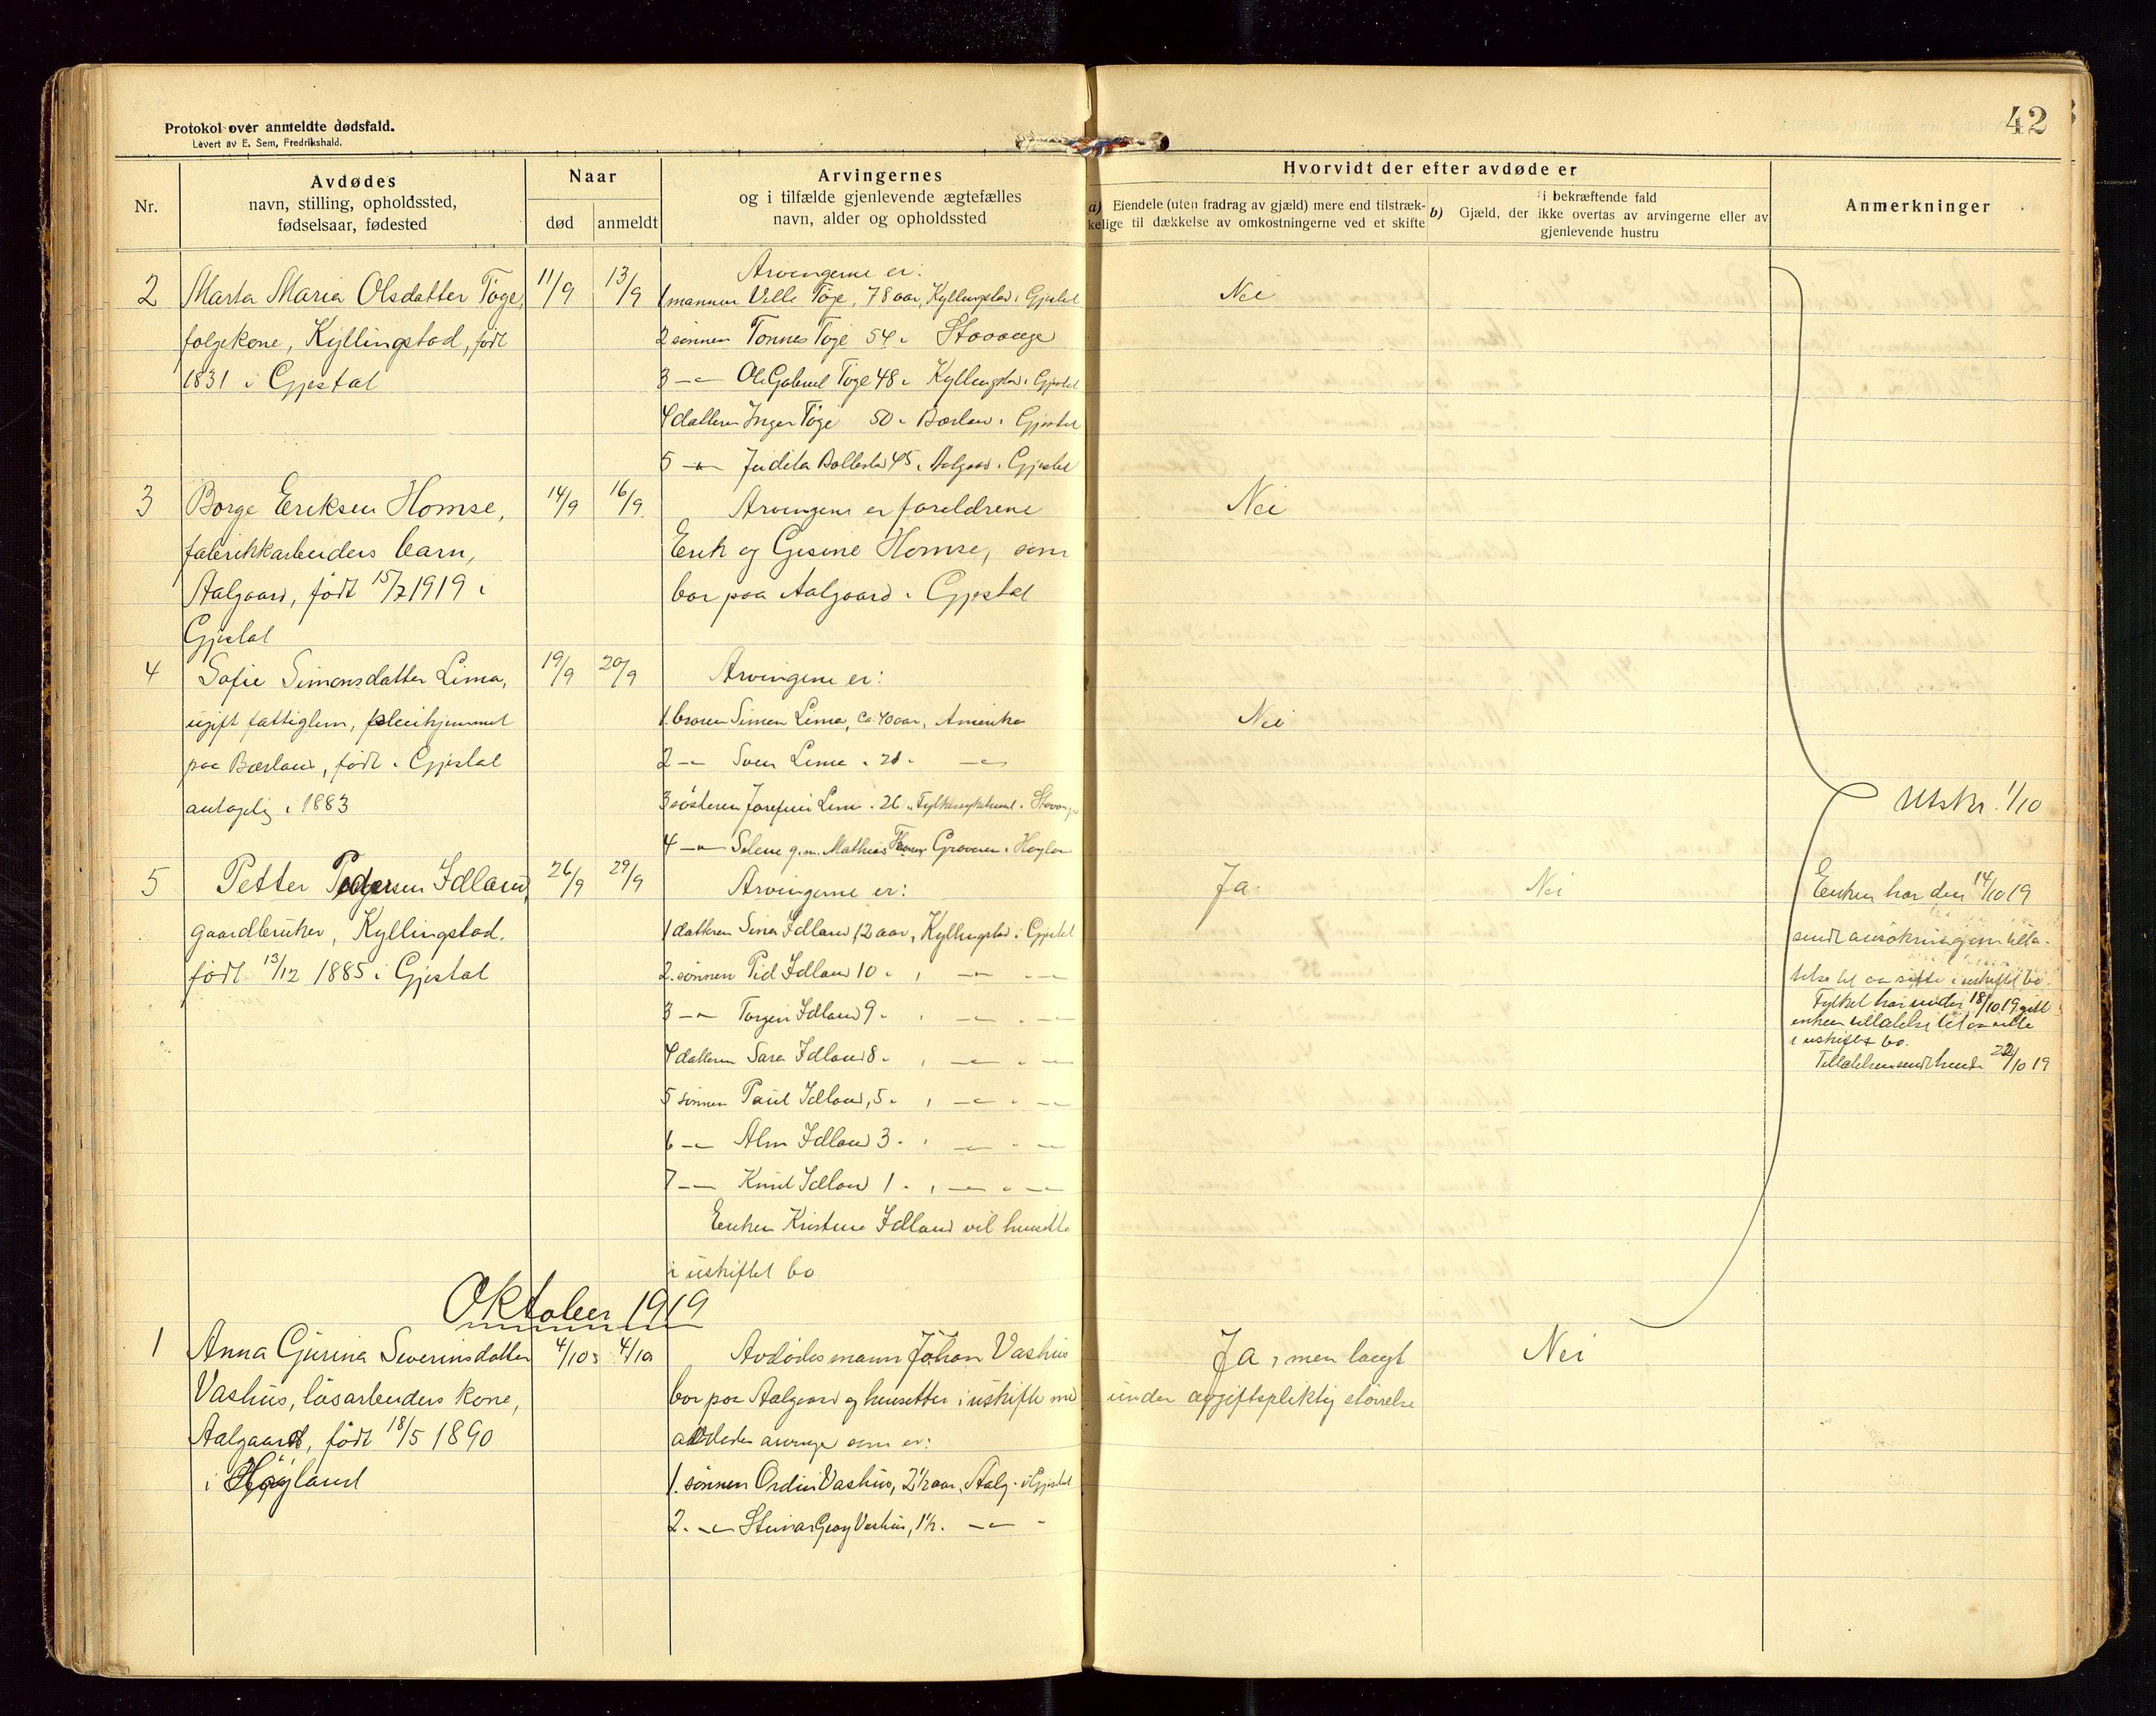 42
Protokol over anmeldte dødsfald.
Levert av E. Sem, Fredrikshald.
Nr.
Avdødes
navn, stilling, opholdssted,
fødselsaar, fødested
Naar
død
anmeldt
Arvingernes
og i tilfælde gjenlevende ægtefælles
navn, alder og opholdssted
Hvorvidt der efter avdøde er
a) Eiendele (uten fradrag av gjæld) mere end tilstræk-
kelige til dækkelse av omkostningerne ved et skifte
b) i bekræftende fald
Gjæld, der ikke overtas av arvingerne eller av
gjenlevende hustru
Anmerkninger
2 Marta Maria Olsdatter Töge,
folgekone, Kyllingstad, født
1831 i Gjestal
11/9 13/9
Arvingerne er:
1 mannen Ville Töge, 78 aar, Kyllingstad i Gjestal
2 sönnen Tönnes Töge 54 " Stavanger
3 -"- Ole Gabriel Töge 48 " Kyllingstad i Gjestal
4 datteren Inger Töge 50 " Bærland i Gjestal
5 -"- Judita 45 " Aalgaard i Gjestal
Nei
3 Borge Eriksen Homse,
fabrikkarbeiders barn,
Aalgaard, født 15/7 1919 i
Gjestal
14/9 16/9
Arvingene er foreldrene
Erik og Gesine Homse, som
bor paa Aalgaard i Gjestal
Nei
4 Sofie Simonsdatter Lima,
ugift fattiglem, pleiehjemmet
paa Bærland, født i Gjestal
antagelig i 1883
19/9 20/9
Arvingene er:
1. broren Simon Lima, ca. 40 aar, Amerika
2 -"- Sven Lima " 21 " -"-
3 søsteren Josefine Lima " 26 " Fylkessykehuset i Stavanger
4 -"- Selene g.m. Mathias Graveren i Høyland
Nei
Utskr. 1/10
5 Petter Pedersen Idland,
gaardbruker, Kyllingstad,
født 13/12 1885 i Gjestal
26/9 29/9
Arvingerne er:
1 datteren Sina Idland, 12 aar, Kyllingstad i Gjestal
2. sönnen Pid Idland 10 " , -"- " -"-
3 -"- Torger Idland 9 " , -"- " -"-
4 datteren Sara Idland 8 " , -"- " -"-
5 sönnen Paul Idland, 5 " , -"- " -"-
6 -"- Alm Idland 3 " , -"- " -"-
7 -"- Knut Idland 1 " , -"- " -"-
Enken Kristine Idland vil hensitte
i uskiftet bo
Ja.
Nei
Enken har den 14/10 19
sendt ansökning om tilla-
telse til aa sitte i uskiftet bo.
Fylket har under 18/10 19 gitt
enken tillatelse til aa sitte
i uskiftet bo.
Tillatelsen sendt hende 22/10 19
Oktober 1919
1 Anna Gurina Severinsdatter
Vashus, løsarbeiders kone,
Aalgaard, født 18/5 1890
i Høyland
4/10 4/10
Avdødes mann Johan Vashus
bor paa Aalgaard og hensetter i uskifte med
avdødes arvinge som er:
1. sönnen Ordin Vashus, 2½ aar, Aalg. i Gjestal
2. -"- Steinar Georg Vashus, 1½ " -"- "
Ja, men langt
under avgiftspliktig størrelse
Nei